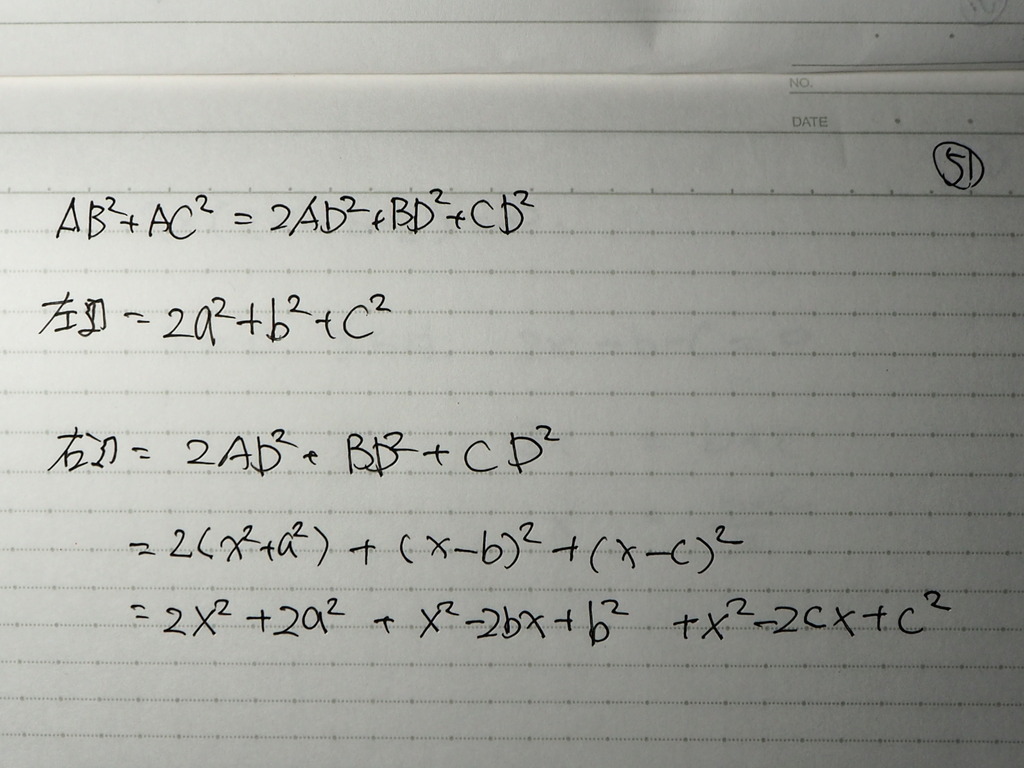 NO.
DATE
51
AB²+AC² = 2AD²+BD²+CD²
左辺 = 2a²+b²+c²
右辺 = 2AD² + BD² + CD²
= 2(x²+a²) + (x-b)² + (x-c)²
= 2x² + 2a² + x² - 2bx + b² + x² - 2cx + c²